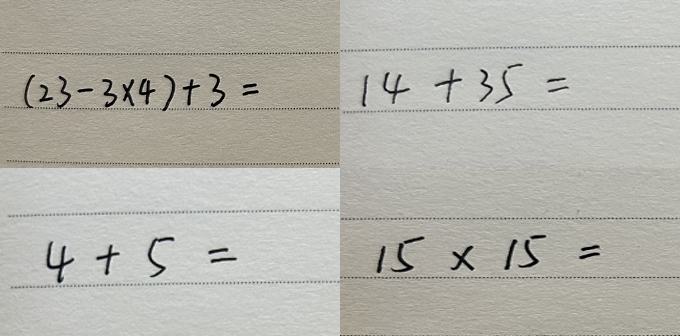 (23-3×4)+3=
14+35=
4+5=
15×15=